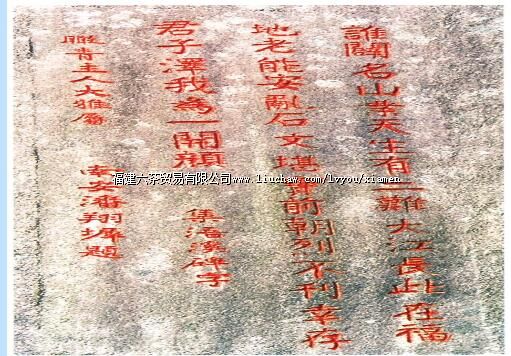 誰闢名山業天生有二難大江長此在福
地老能安亂石文堪前朝不幸存
君子澤我為一開顏
集浯溪碑字
南安潘翔墀題
主人大雅屬
福建六茶贸易有限公司www.liuchaw.com/lvyou/xiamen